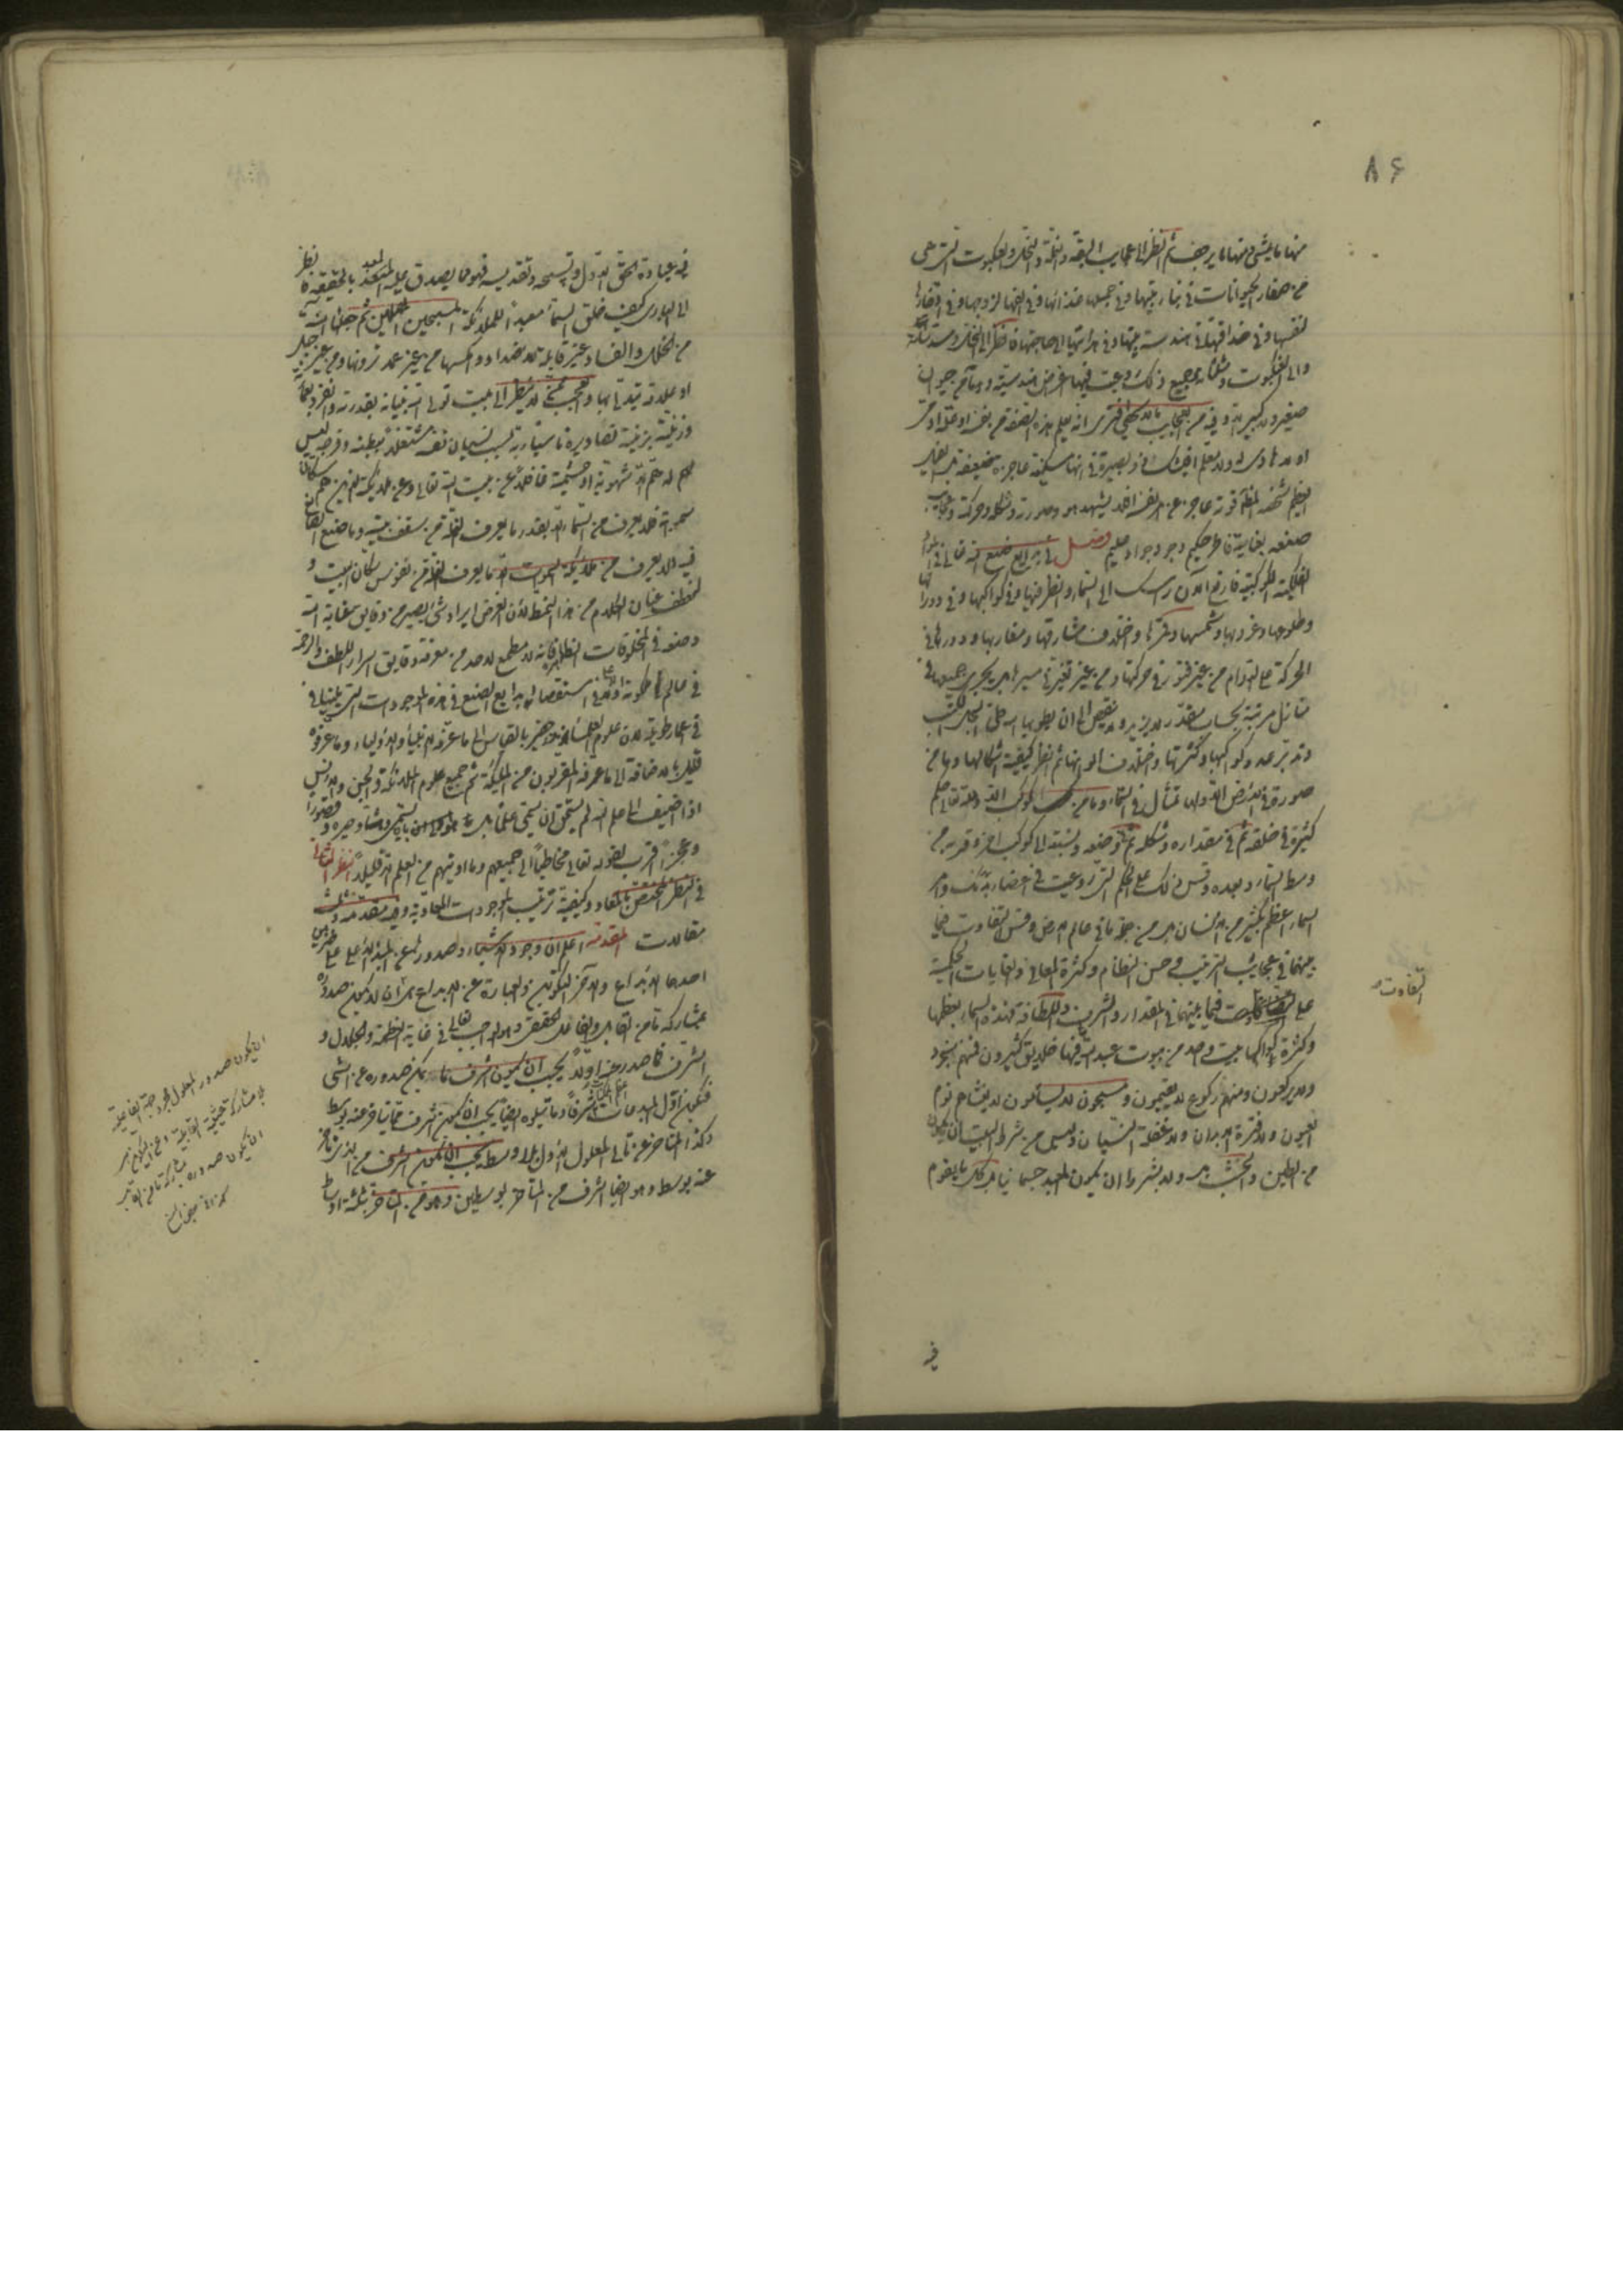 ٨٦
منها ما يمشي ومنها ما يزحف ثم انظر الى عجايب البقة والنملة والنحل والعنكبوت التي هي
من صغار الحيوانات في بناء بيتها وفي جمعها غذائها وفي الفها لزوجها وفي ادخارها
لنفسها وفي حذاقتها في هندسة بيتها وفي هدايتها الى حاجتها فانظر الى النحل ومسدساته
والى العنكبوت ومثلثاته جميع ذلك روعيت فيها اغراض هندسية وما من حيوان
صغير ولا كبير الا وفيه من العجايب ما لا يحصى افترى انه تعلم هذه الصنعة من نفسه او علمه آدمي
او لا هادي له ولا معلم افيشك ذو بصيرة في انها مسكينة عاجزة ضعيفة بل الفيل
العظيم شخصه الظاهر قوته عاجز عن امر نفسه افلا يشهد هو وصورته وشكله وحركته وعجايب
صنعه بغاية فاطر حكيم وجود جواد عليم فصل في بدايع صنع الله تعالى في
الفلكية الكوكبية فارفع الآن رأسك الى السماء وانظر فيها وفي كواكبها وفي دورانها
وطلوعها وغروبها وشمسها وقمرها واختلاف مشارقها ومغاربها ودورها في
الحركة على الدوام من غير فتور في حركتها ومن غير تغير في سيرها بل يجري جميعها في
منازل مرتبة بحساب مقدر لا يزيد ولا ينقص الى ان يطويها الله طي السجل للكتب
وتدبر عدد كواكبها وكثرتها واختلاف الوانها ثم انظر كيفية اشكالها وما من
صورة في الارض الا ولها تمثال في السماء وما من كوكب الا ولله تعالى حكم
كثيرة في خلقه ثم في مقداره وشكله ثم في وضعه ونسبته الى كوكب آخر وقربه من
وسط السماء وبعده وقس ذلك على الحكم التي روعيت في اعضاء بدنك وامر
السماء اعظم بكثير من الانسان بل من جميع ما في عالم الارض وقس التفاوت فيما
بينهما في عجايب الترتيب وحسن النظام وكثرة المعاني والغايات الحكمية
على التفاوت فيما بينهما في المقدار والشرف واللطافة فهذه السماء بعظمها
وكثرة كواكبها بيت واحد من بيوت عبد الله فيها خلايق كثيرون فمنهم سجود
ولا يركعون ومنهم ركوع لا يقيمون ومسبحون لا يسأمون لا يغشاهم نوم
العيون ولا فترة الابدان ولا غفلة النسيان وليس من شرط البيت ان يكون
من الطين والخشب بل ولا بشرط ان يكون المعبد جسمانيا بل كل ما يقوم
التفاوت
فيه
فيه بعبادة الحق الاول وتسبيحه وتقديسه فهو مما يصدق عليه المعبد بالحقيقة فانظر
الى الباري كيف خلق السماء معبدا للملائكة المسبحين المهللين ثم جعلها آمنة
من الخلل والفساد وغير قابلة للاضداد وامسكها من غير عمد ترونها ومن غير حبل
او علاقة تتدلى بها والعجب ممن لا ينظر الى بيت تولى الله بنيانه بقدرته وانفرد بعمارته
وزينه بزينة تصاويره ناسيا ربه بسبب نسيان نفسه مشتغلا ببطنه وفرجه ليس
لهم الا همة شهوية او حشمية فاغفل عن بيت الله تعالى وعن ملائكته الذين هم سكان
سمواته فلا يعرف من السماء الا بقدر ما يعرف النملة من سقف بيته وما صنع الصانع
فيه ولا يعرف من ملائكة السموات الا ما يعرف النملة من نفوس سكان البيت و
لنعطف عنان الكلام من هذا النمط لان الغرض ايراد شيء يسير من دقايق عناية الله
وصنعه في المخلوقات الظاهرة فانه لا مطمع لاحد من معرفة دقايق اسرار اللطف والرحمة
في عالم ملكوته الاعلى ولا في استقصاء بدايع الصنع في هذه الموجودات التي تلينا في
في اعمار طويلة لان علوم العلماء نزر حقير بالقياس الى ما عرفه الانبياء والاولياء وما عرفوه
قليل بالاضافة الى ما عرفه المقربون من الملائكة ثم جميع علوم الملائكة والجن والانس
اذا اضيف الى علم الله لم يستحق ان يسمى علما بل هو الى ان يسمى دهشا وحيرة وقصورا
وعجزا اقرب لقوله تعالى مخاطبا الى جميعهم وما اوتيتم من العلم الا قليلا النظر الثاني
في النظر المختص بالمعاد وكيفية ترتيب الموجودات المعادية وفيه مقدمة وثلث
مقالات المقدمة اعلم ان وجود الاشياء وصدورها عن المبدأ الاعلى على ضربين
احدهما الابداع والآخر التكوين والعبارة عن الابداع هي ان لا يكون صدوره
بمشاركة ما من القابل والفاعل الحقيقي وهو الواجب تعالى في غاية العظمة والجلال و
الشرف فما صدر عنه اولا يجب ان يكون اشرف ما يمكن صدوره عن الشي
فيكون اول المبدعات شرفا وما يتلوه ايضا يجب ان يكون اشرف مما يتأخر عنه بوسط
وكذا المتأخر عن ثاني المعلول الاول بلا وسط يجب ان يكون اشرف من الذي تأخر
عنه بوسط وهو ايضا اشرف من المتأخر بوسطين وهو من المتأخر بثلثة اوساط
ان يكون صدور المعلول بمجرد جهة الفاعلية
بلا مشاركة حيثية القابلية وعن التكوين هي
ان يكون صدوره بمشاركة ما من القابل